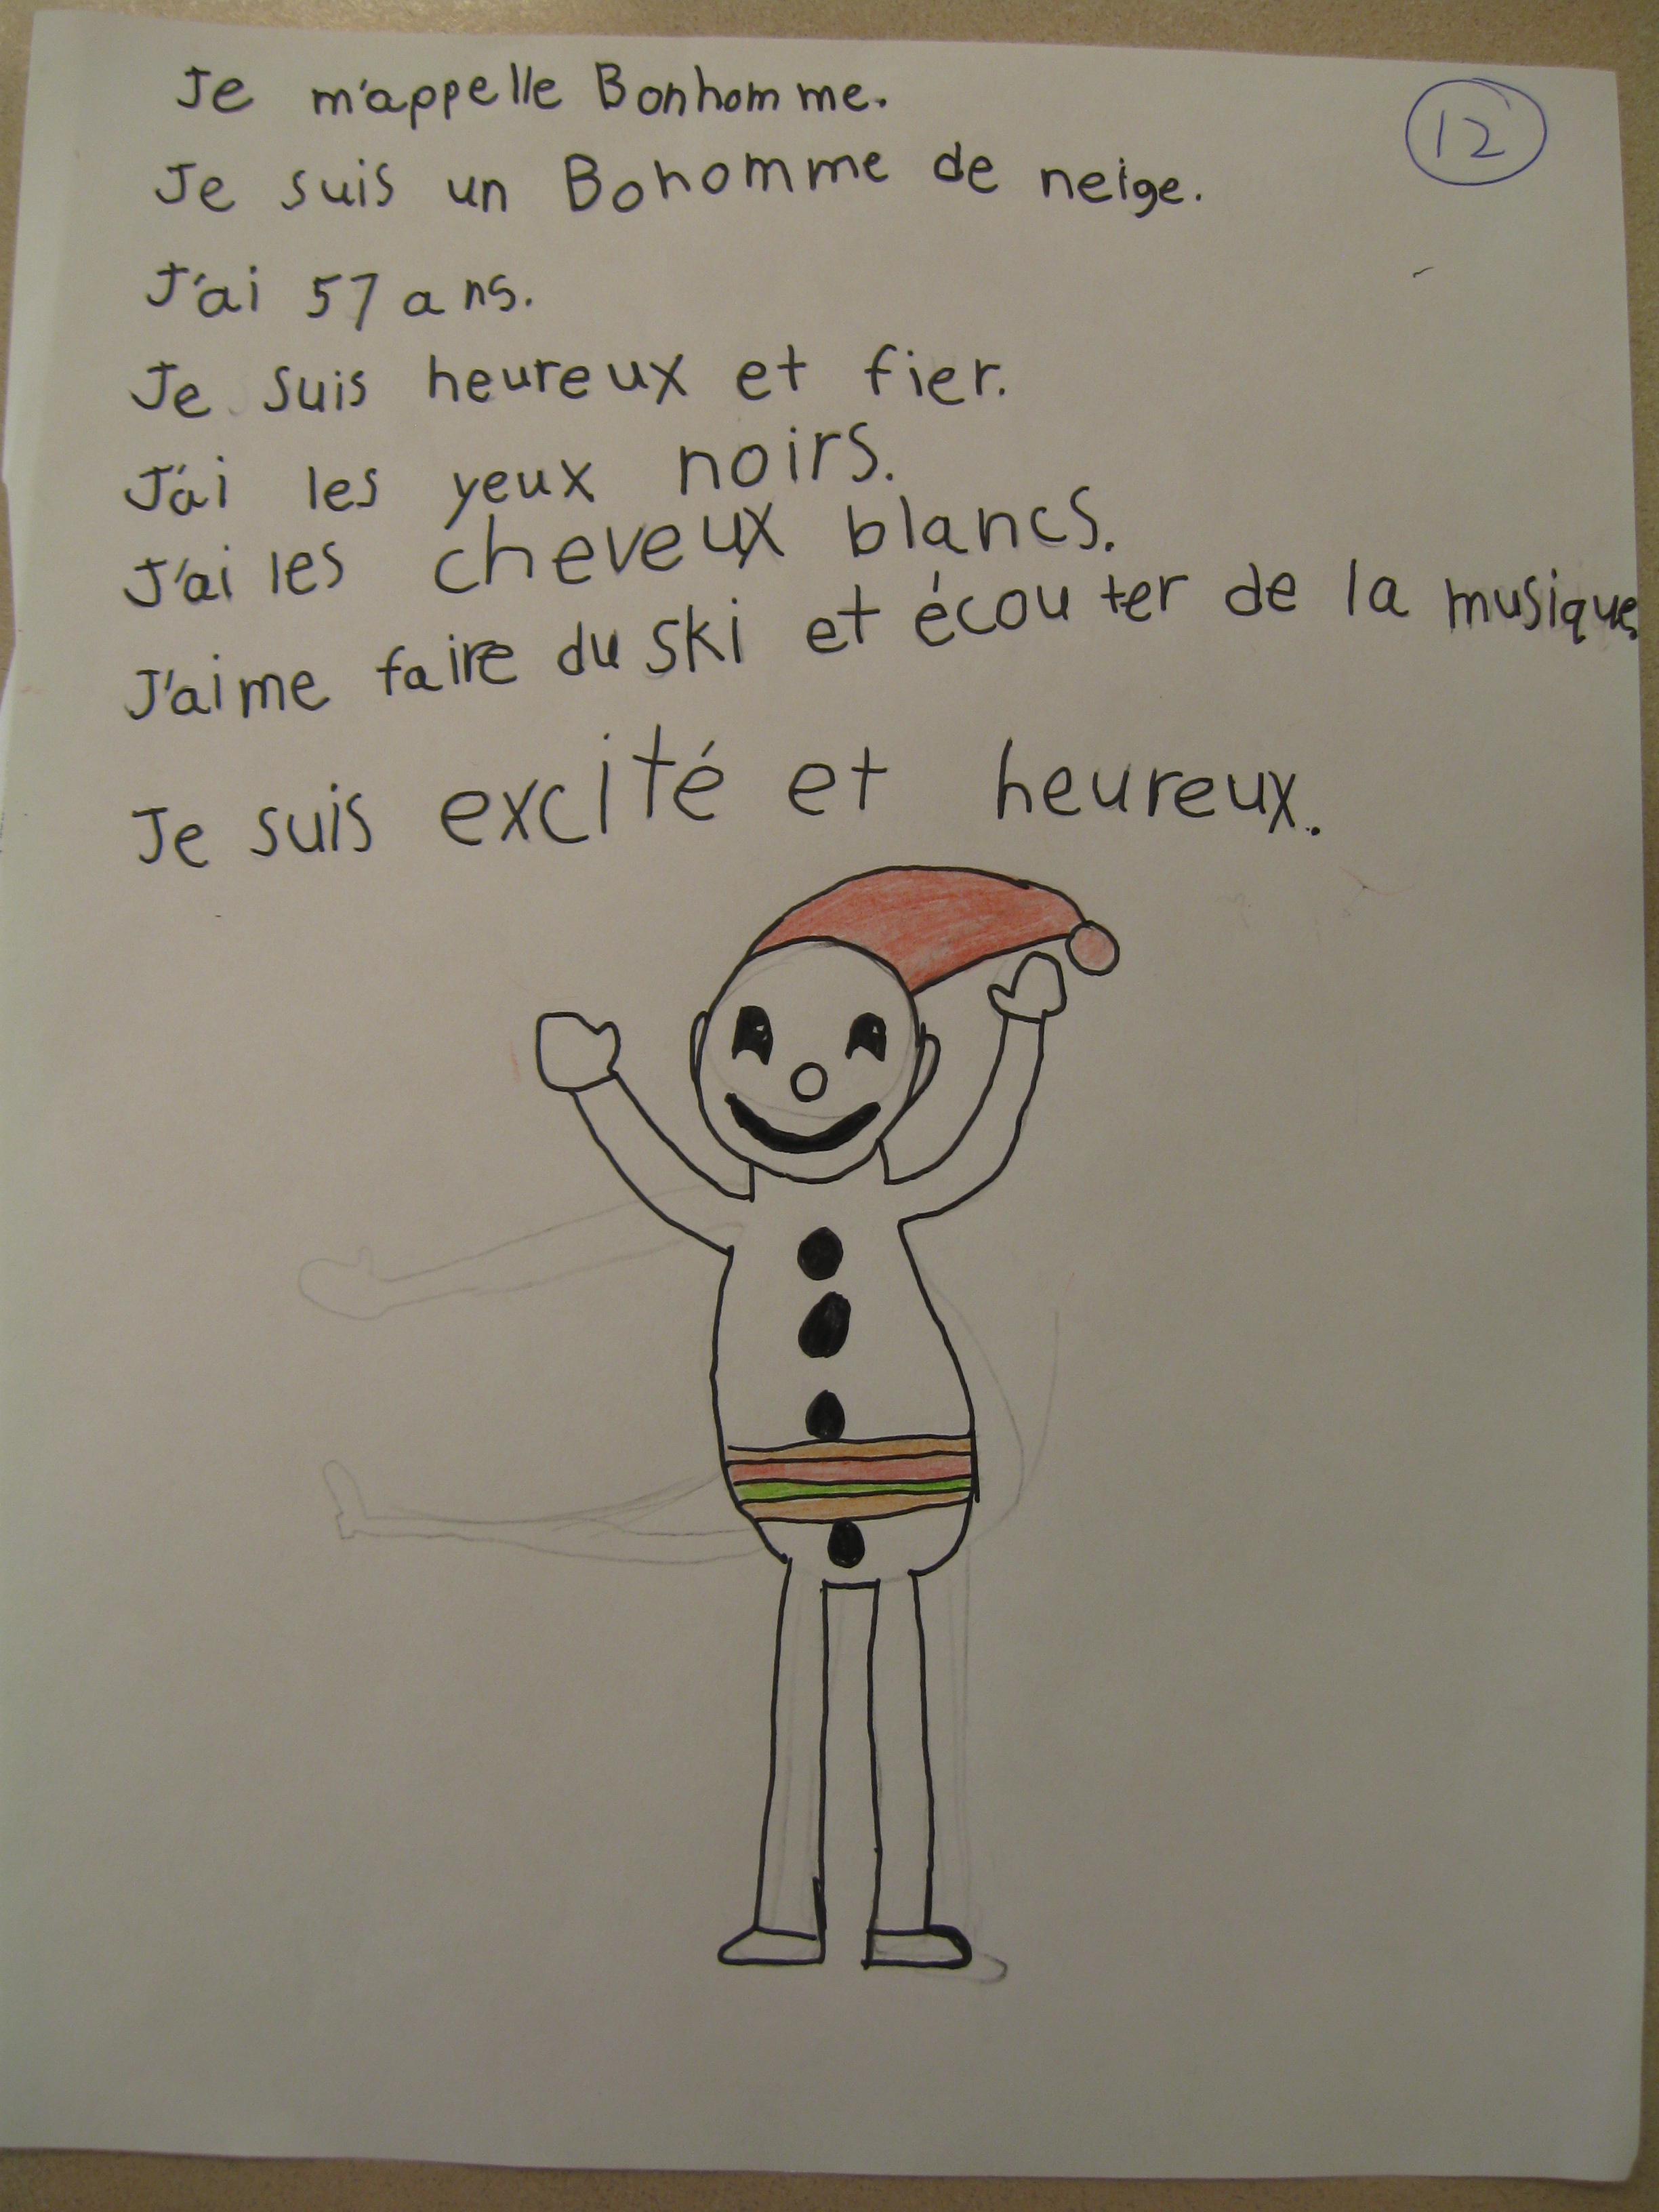 Je m'appelle Bonhomme.
12
Je suis un Bohomme de neige.
J'ai 57 ans.
Je suis heureux et fier.
J'ai les yeux noirs.
J'ai les cheveux blancs.
J'aime faire du ski et écouter de la musique.
Je suis excité et heureux.